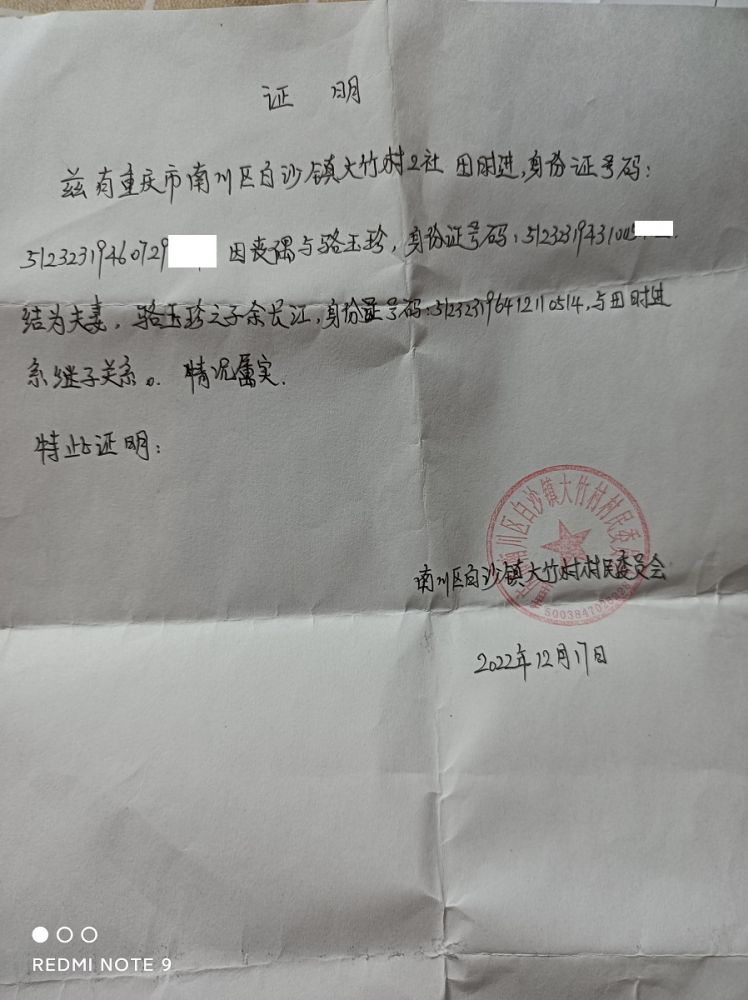 证 明
兹有重庆市南川区白沙镇大竹村2社 田时进,身份证号码:
51232319460729 因丧偶与骆玉珍,身份证号码:5123231943100
结为夫妻,骆玉珍之子余长江,身份证号码:512323196412110514,与田时进
系继子关系。情况属实.
特此证明:
南川区白沙镇大竹村村民委员会
南川区白沙镇大竹村村民委员会
2022年12月17日
REDMI NOTE 9